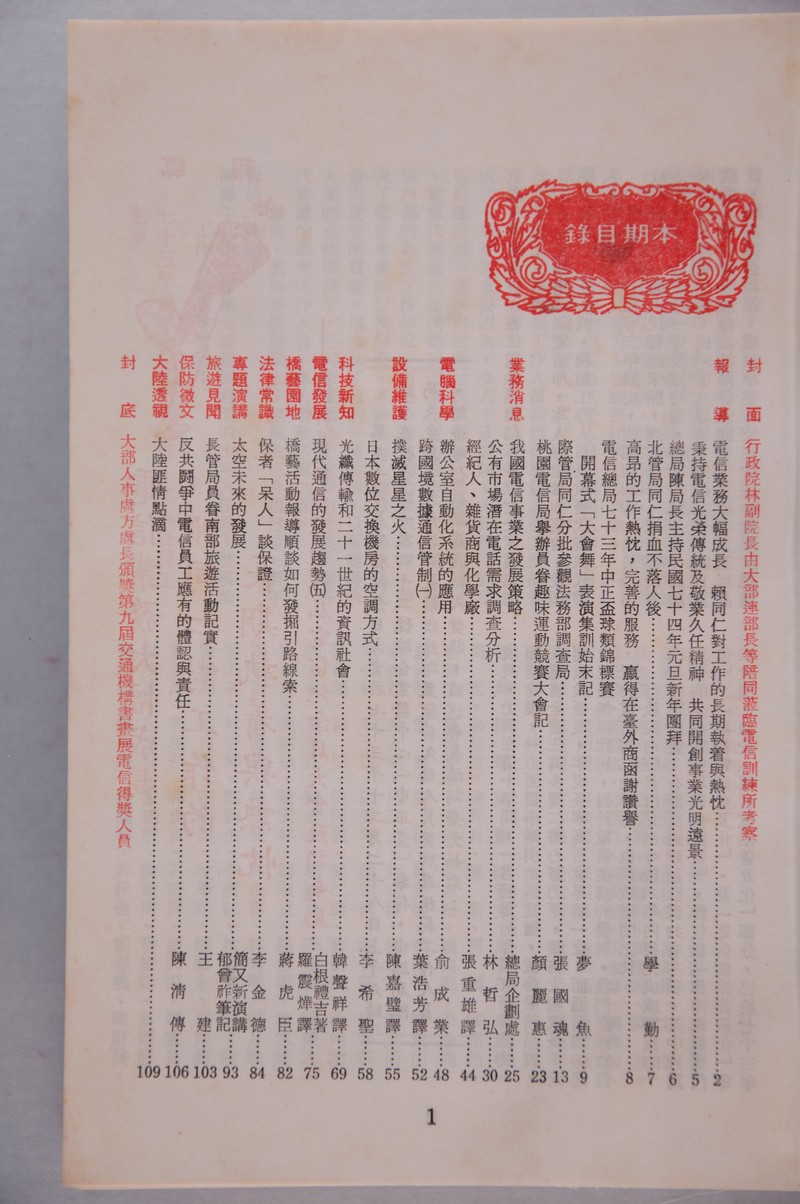 本期目錄
封面 行政院林副院長由大部連部長等陪同蒞臨電信訓練所考察
報導 電信業務大幅成長 賴同仁對工作的長期執着與熱忱……2
秉持電信光榮傳統及敬業久任精神 共同開創事業光明遠景……5
總局陳局長主持民國七十四年元旦新年團拜……6
北管局同仁捐血不落人後……學勤……7
高昂的工作熱忱，完善的服務 贏得在臺外商函謝讚譽……8
電信總局七十三年中正盃球類錦標賽
開幕式「大會舞」表演集訓始末記……夢魚……9
際管局同仁分批參觀法務部調查局……張國魂……13
桃園電信局舉辦員眷趣味運動競賽大會記……顏麗惠……23
業務消息 我國電信事業之發展策略……總局企劃處……25
公有市場潛在電話需求調查分析……林哲弘……30
經紀人、雜貨商與化學廠……張重雄譯……44
電腦科學 辦公室自動化系統的應用……俞成業……48
跨國境數據通信管制㈠……葉浩芳譯……52
設備維護 撲滅星星之火……陳嘉璧譯……55
日本數位交換機房的空調方式……李希聖……58
科技新知 光纖傳輸和二十一世紀的資訊社會……韓聲祥譯……69
電信發展 現代通信的發展趨勢㈤……白根禮吉著 羅震燁譯……75
橋藝園地 橋藝活動報導順談如何發掘引路線索……蔣虎臣……82
法律常識 保者「呆人」談保證……李金德……84
專題演講 太空未來的發展……簡又新演講 郁曾祚筆記……93
旅遊見聞 長管局員眷南部旅遊活動記實……王建……103
保防徵文 反共鬪爭中電信員工應有的體認與責任……陳清傳……106
大陸透視 大陸匪情點滴……109
封底 大部人事處方處長頒獎第九屆交通機構書畫展電信得獎人員
1